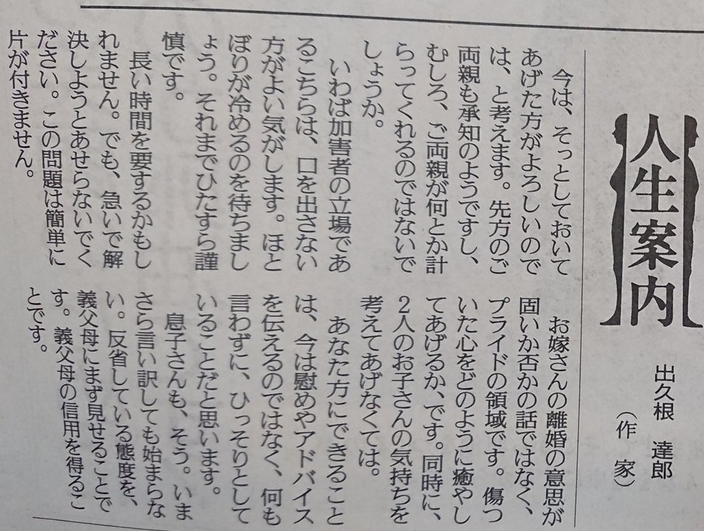 人生案内
出久根 達郎
（作 家）
今は、そっとしておいて
あげた方がよろしいので
は、と考えます。先方のご
両親も承知のようですし、
むしろ、ご両親が何とか計
らってくれるのではないで
しょうか。
いわば加害者の立場であ
るこちらは、口を出さない
方がよい気がします。ほと
ぼりが冷めるのを待ちまし
ょう。それまでひたすら謹
慎です。
長い時間を要するかもし
れません。でも、急いで解
決しようとあせらないでく
ださい。この問題は簡単に
片が付きません。
お嫁さんの離婚の意思が
固いか否かの話ではなく、
プライドの領域です。傷つ
いた心をどのように癒やし
てあげるか、です。同時に、
2人のお子さんの気持ちを
考えてあげなくては。
あなた方にできること
は、今は慰めやアドバイス
を伝えるのではなく、何も
言わずに、ひっそりとして
いることだと思います。
息子さんも、そう。いま
さら言い訳しても始まらな
い。反省している態度を、
義父母にまず見せることで
す。義父母の信用を得るこ
とです。